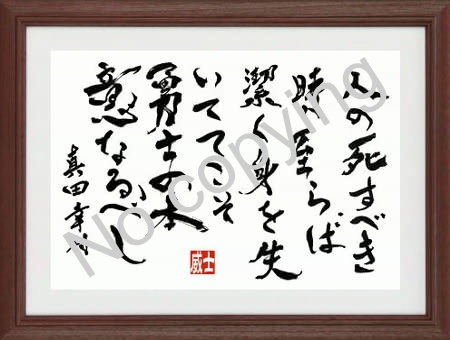 人の死すべき
時至らば
潔く身を失
いててこそ
勇士の本
意なるべし
真田幸村
士威
No copying